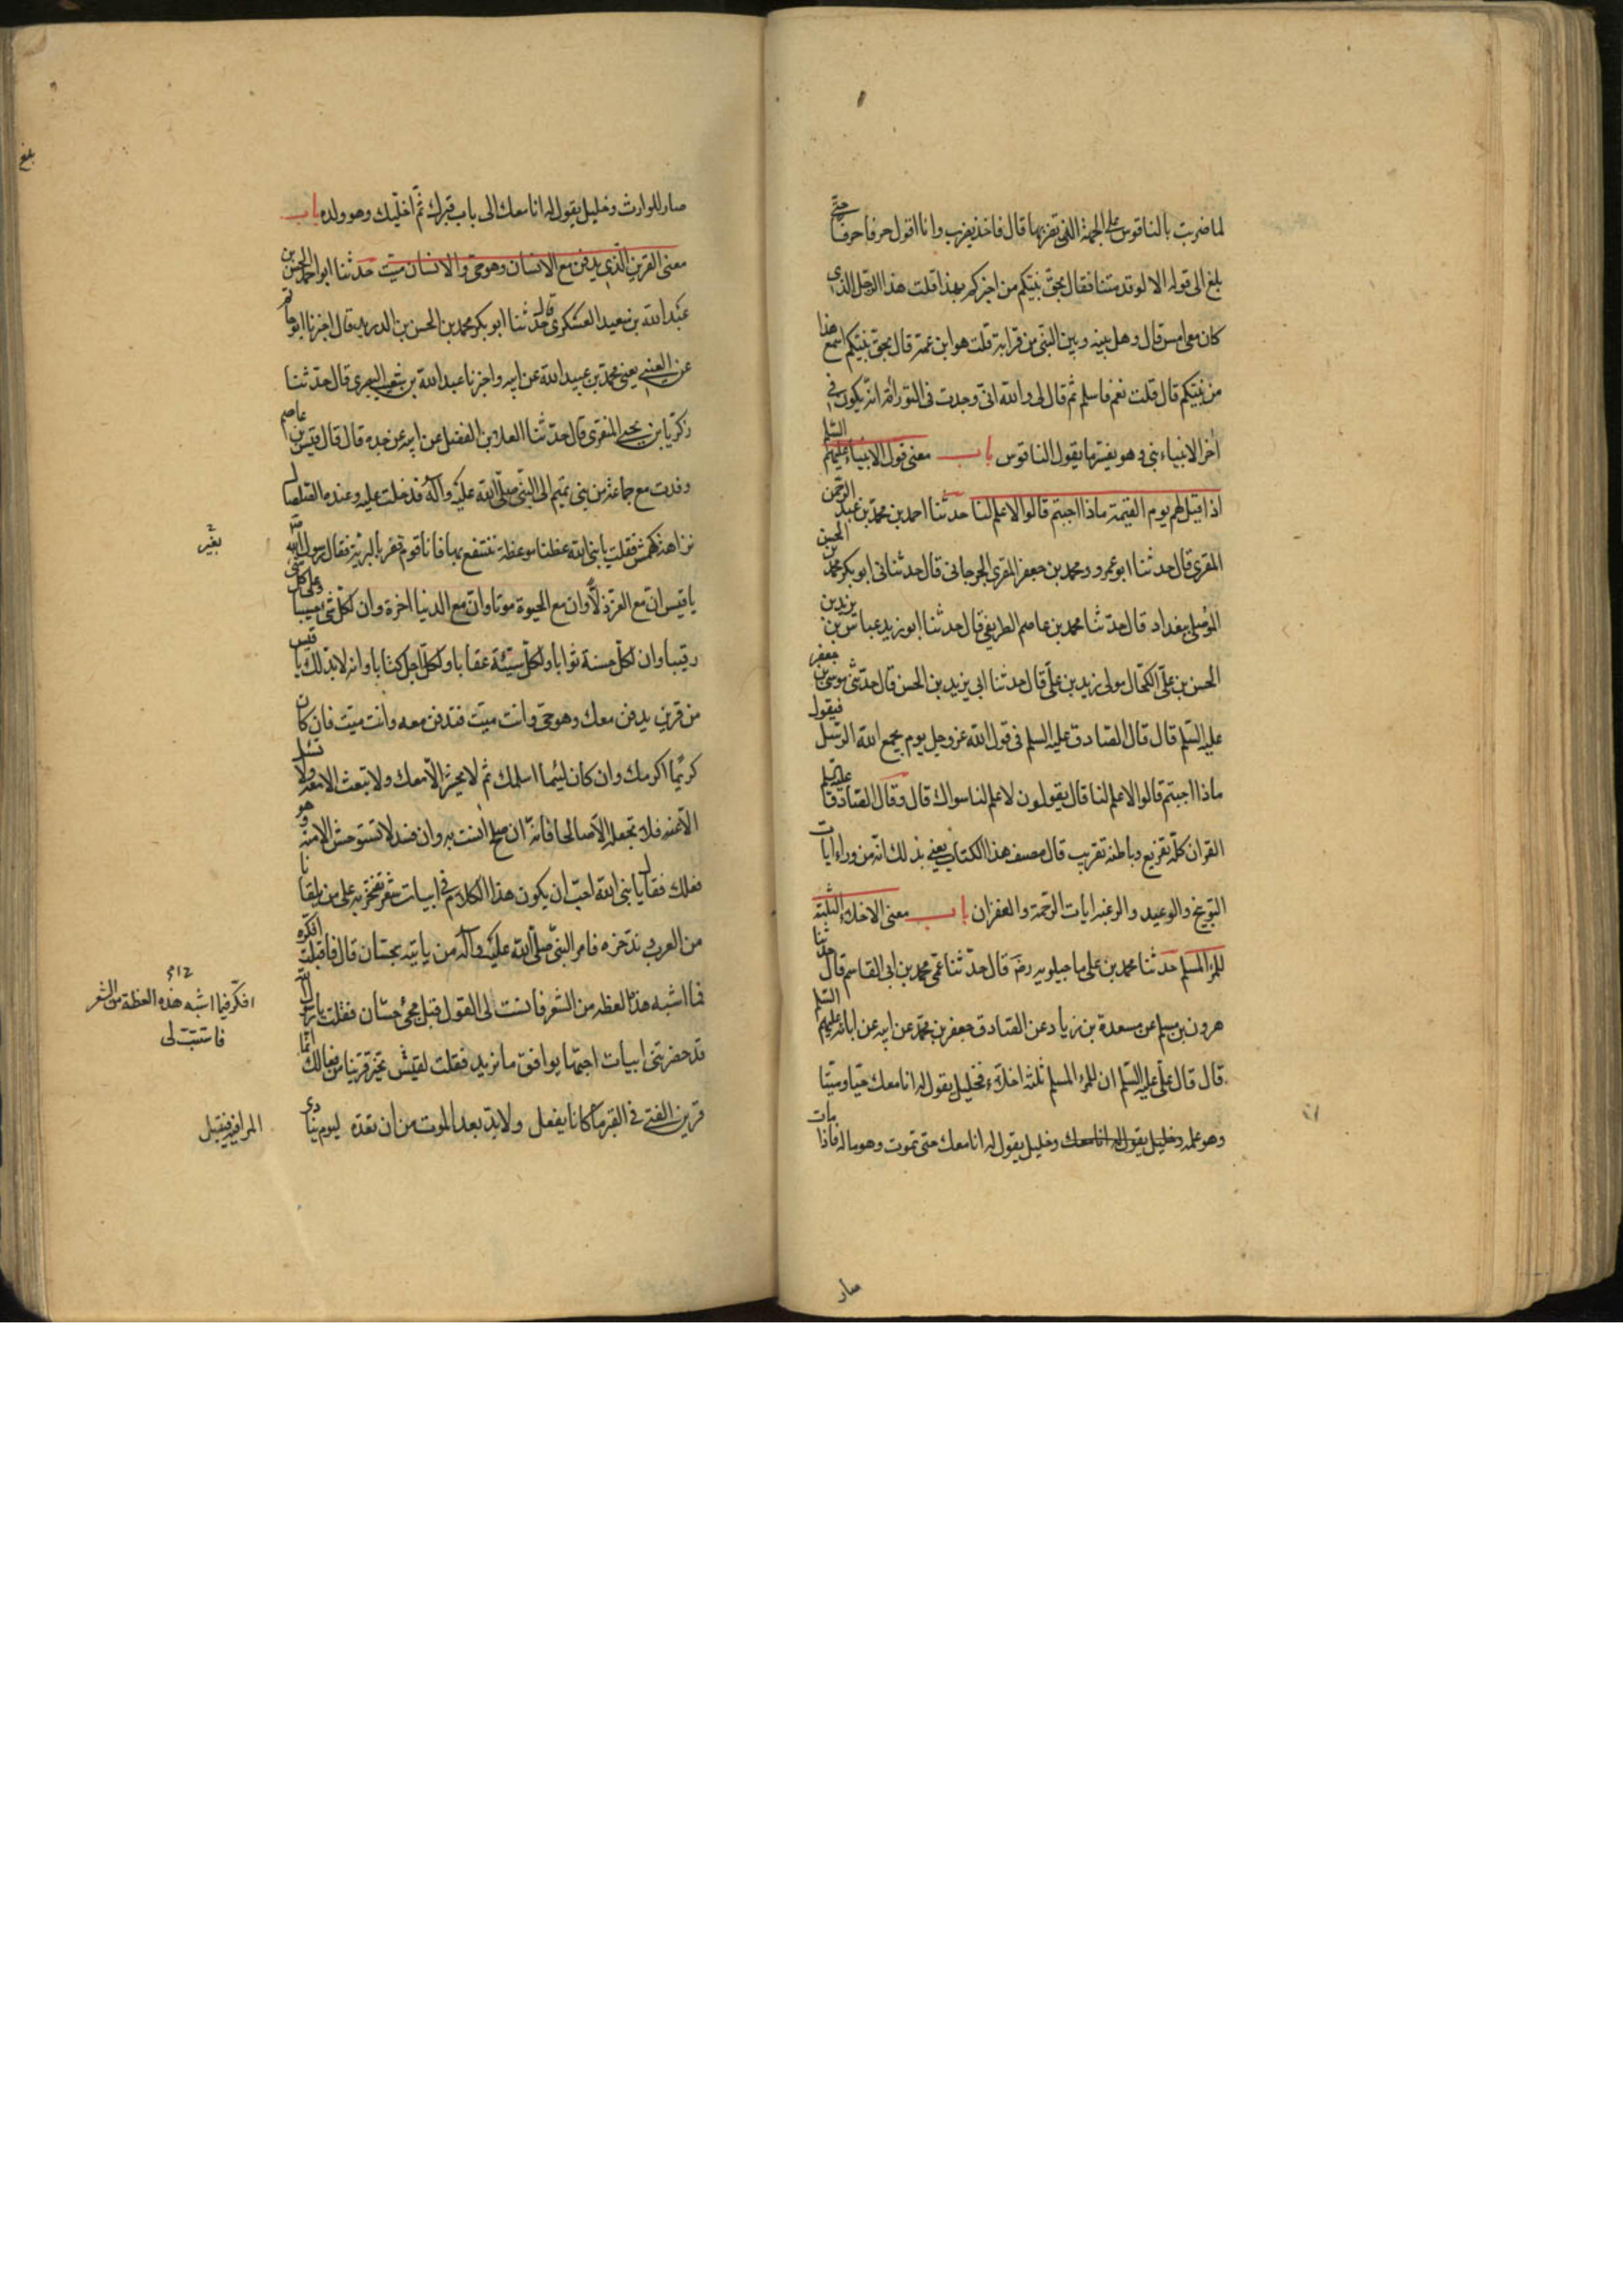 لما ضربت بالناقوس على الجهة التي تضربها قال فاخذ يضرب وانا اقول حرفا حرفا حتى
بلغ الى قوله الا لو قد متنا فقال بحق نبيكم من اخبركم بهذا قلت هذا الرجل الذي
كان معي امس قال وهل بينه وبين النبي من قرابة قلت هو ابن عمه قال بحق نبيكم اسمع هذا
من نبيكم قال قلت نعم فاسلم ثم قال لي والله اني وجدت في التوراة انه يكون في
آخر الانبياء نبي وهو يفسر ما يقول الناقوس باب معنى قول الانبياء عليهم السلم
اذا قيل لهم يوم القيمة ماذا اجبتم قالوا لا علم لنا حدثنا احمد بن محمد بن عبد الرحمن
المقري قال حدثنا ابو عمرو ومحمد بن جعفر المقري الجرجاني قال حدثنا ابو بكر محمد بن الحسن
الموصلي ببغداد قال حدثنا محمد بن عاصم الطريفي قال حدثنا ابو زيد عباس بن يزيد بن
الحسن بن علي الكحال مولى زيد بن علي قال حدثنا ابي يزيد بن الحسن قال حدثني موسى بن جعفر
عليه السلم قال قال الصادق عليه السلم في قول الله عز وجل يوم يجمع الله الرسل فيقول
ماذا اجبتم قالوا لا علم لنا قال يقولون لا علم لنا سواك قال وقال الصادق عليه السلم
القران كله تقريع وباطنه تقريب قال مصنف هذا الكتاب يعني بذلك انه من وراء ايات
التوبيخ والوعيد والرغبه ايات الرحمة والغفران باب معنى الاخلاء الثلثه
للمرء المسلم حدثنا محمد بن علي ماجيلويه رضه قال حدثنا عمي محمد بن ابي القاسم قال حدثنا
هرون بن مسلم عن مسعدة بن زياد عن الصادق جعفر بن محمد عن ابيه عن ابائه عليهم السلم
قال قال علي عليه السلم ان للمرء المسلم ثلثه اخلاء فخليل يقول له انا معك حيا وميتا
وهو عمله وخليل يقول له انا معك وخليل يقول له انا معك حتى تموت وهو ماله فاذا مات
صار
بلغ
صار للوارث وخليل يقول له انا معك الى باب قبرك ثم اخليك وهو ولده باب
معنى القرين الذي يدفن مع الانسان وهو حي والانسان ميت حدثنا ابو احمد الحسن بن
عبد الله بن سعيد العسكري قال حدثنا ابو بكر محمد بن الحسن بن الدريد قال اخبرنا ابو حاتم
عن العتبي يعني محمد بن عبيد الله عن ابيه واخبرنا عبد الله بن شبيب البصري قال حدثنا
زكريا بن يحيى المنقري قال حدثنا العلا بن الفضيل عن ابيه عن جده قال قال قيس بن عاصم
وفدت مع جماعة من بني تميم الى النبي صلى الله عليه وآله فدخلت عليه وعنده الصلصال
فقلت يا نبي الله عظنا موعظة ننتفع بها فانا قوم نعبر بالبرية فقال رسول الله
يا قيس ان مع العز ذلا وان مع الحيوة موتا وان مع الدنيا اخرة وان لكل شيء حسيبا وعلى كل شي
رقيبا وان لكل حسنة ثوابا ولكل سيئة عقابا ولكل اجل كتابا وانه لابد لك يا قيس
من قرين يدفن معك وهو حي وانت ميت فتدفن معه وانت ميت فان كان
كريما اكرمك وان كان لئيما اسلمك ثم لا يحشر الا معك ولا تبعث الا معه ولا تسئل
الا عنه فلا تجعله الا صالحا فانه ان صلح انست به وان فسد لا تستوحش الا منه وهو
فعلك فقال يا نبي الله احب ان يكون هذا الكلام في ابيات شعر نفتخر به على من يلينا
من العرب وندخره فامر النبي صلى الله عليه وآله من ياتيه بحسان قال فاقبلت افكر
فيما اشبه هذه العظه من الشعر فاستتب لي القول قبل مجئ حسان فقلت يا رسول الله
قد حضرتني ابيات احسبها يوافق ما نريد فقلت لقيس تخير قرينا من فعالك انما
قرين الفتى في القبر ما كان يفعل ولابد بعد الموت من ان تعده ليوم ينادى
افكر فيما اشبه هذه العظة من الشعر
فاستتب لي
المرء فيه فيقبل